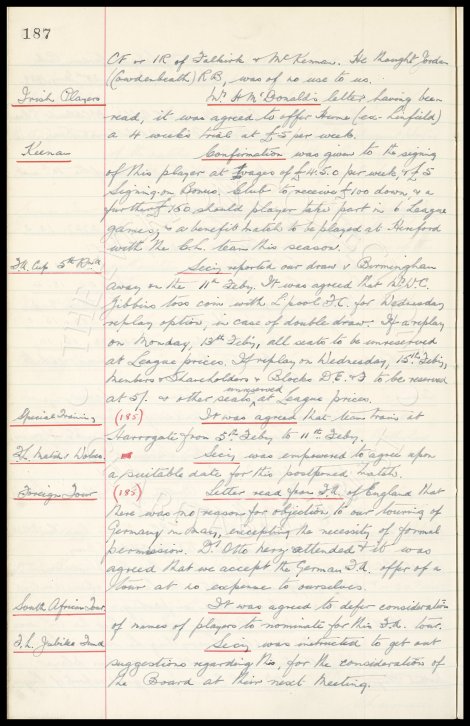 187
CF or IR of Falkirk & McKennan. He thought Jordan
(Cowdenbeath) R.B, was of no use to us.
Irish Players
Mr H McDonald's letter having been
read, it was agreed to offer Hume (ex-Linfield)
a 4 weeks trial at £5 per week.
Keenan
Confirmation was given to the signing
of this player at wages of £4.5.0 per week, & £5
Signing-on Bonus. Club to receive £100 down & a
further £150 should player take part in 6 League
games, & a benefit match to be played at Hinford
with the C.L. team this season.
F.A. Cup 5th Round
Secy reported our draw v Birmingham
away on the 11th Feby. It was agreed that Mr W.C.
Gibbins toss coin with L'pool F.C. for Wednesday
replay option, in case of double draw. If a replay
on Monday, 13th Feby, all seats to be unreserved
at League prices. If replay on Wednesday, 15th Feby,
Members & Shareholders & Blocks D.E. & F to be reserved
at 5/. & other seats unreserved at League prices.
Special Training
(185) It was agreed that team train at
Harrogate from 5th Feby to 11th Feby.
F.L. Match v Wolves.
Secy was empowered to agree upon
a suitable date for this postponed match.
Foreign Tour
(185) Letter read from F.A. of England that
there was no reason for objection to our touring of
Germany in May, excepting the necessity of formal
permission. Dr Otto Nerz attended & it was
agreed that we accept the German F.A. offer of a
tour at no expense to ourselves.
South African Tour.
It was agreed to defer consideration
of names of players to nominate for this F.A. tour.
F.L. Jubilee Fund
Secy was instructed to get out
suggestions regarding this, for the consideration of
the Board at their next Meeting.